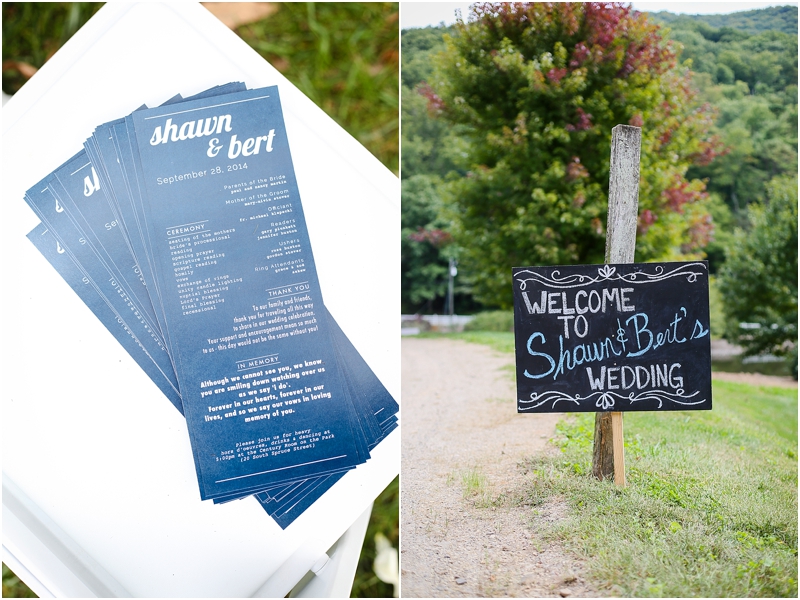 shawn
& bert
September 28, 2014
Parents of the Bride
Mother of the Groom
Officiant
Readers
Ushers
Ring Attendants
CEREMONY
seating of the mothers
bride's processional
reading
opening prayer
scripture reading
gospel reading
homily
vows
exchange of rings
unity candle lighting
nuptial blessing
Lord's Prayer
final blessing
recessional
THANK YOU
To our family and friends,
thank you for traveling all this way
to share in our wedding celebration.
Your support and encouragement mean so much
to us - this day would not be the same without you!
IN MEMORY
Although we cannot see you, we know
you are smiling down watching over us
as we say 'I do'.
Forever in our hearts, forever in our
lives, and so we say our vows in loving
memory of you.
Please join us for heavy
hors d'oeuvres, drinks & dancing at
5:00pm at the Century Room on the Park
(20 South Spruce Street)
sha
Se
WELCOME
TO
Shawn & Bert's
WEDDING